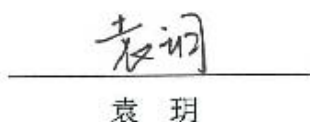 袁玥
袁 玥